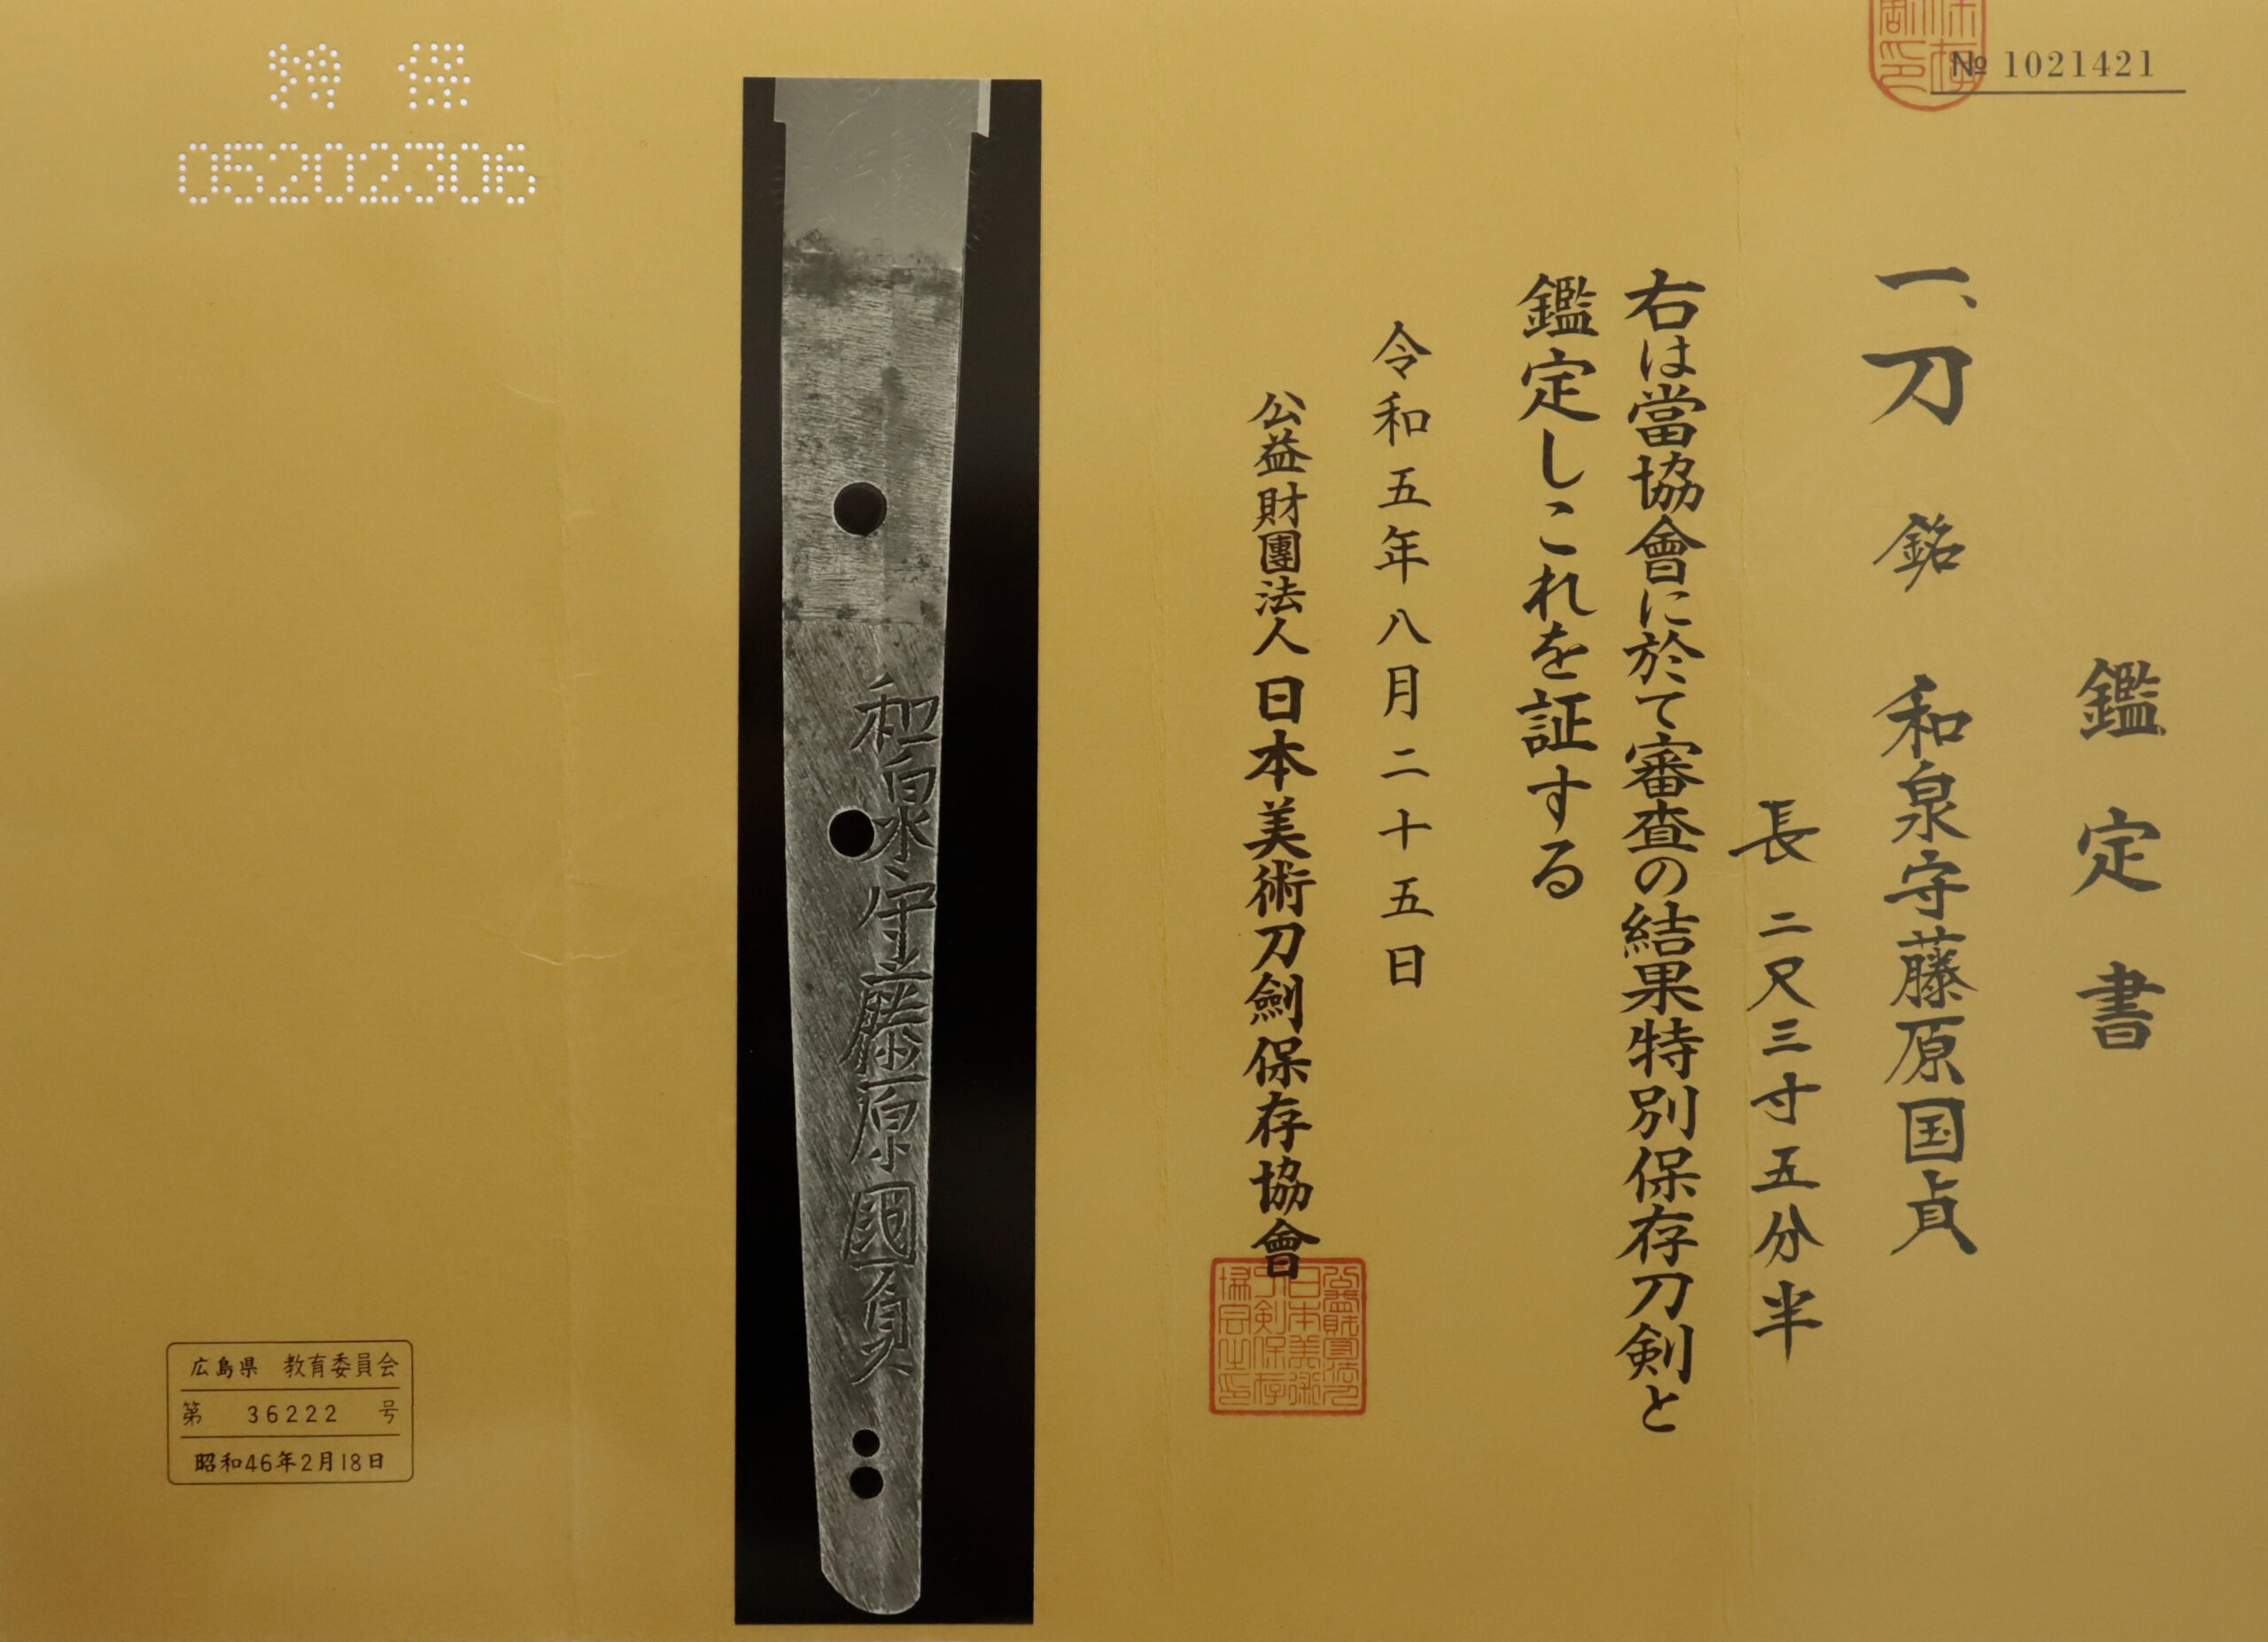 № 1021421
鑑定書
一、刀 銘 和泉守藤原国貞
長二尺三寸五分半
右は當協會に於て審査の結果特別保存刀剣と
鑑定しこれを証する
令和五年八月二十五日
公益財團法人日本美術刀劍保存協會
和泉守藤原國貞
特保
05202306
広島県 教育委員会
第 36222 号
昭和46年2月18日